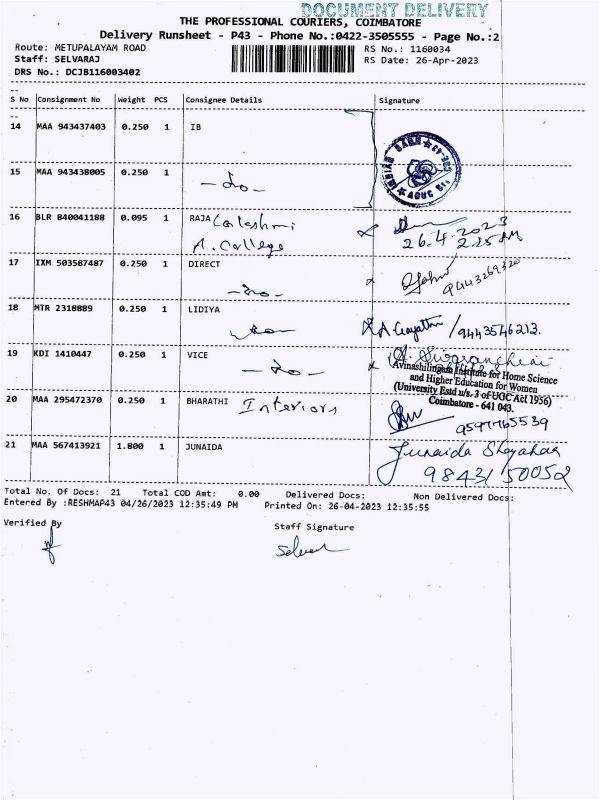 DOCUMENT DELIVERY
THE PROFESSIONAL COURIERS, COIMBATORE
Delivery Runsheet - P43 - Phone No.:0422-3505555 - Page No.:2
Route: METUPALAYAM ROAD
RS No.: 1160034
Staff: SELVARAJ
RS Date: 26-Apr-2023
DRS No.: DCJB116003402
S No Consignment No Weight PCS Consignee Details Signature
14 MAA 943437403 0.250 1 IB
15 MAA 943438005 0.250 1
-do-
16 BLR 840041188 0.095 1 RAJA
A. College
26.4.2023
2.25 PM
17 IXM 503587487 0.250 1 DIRECT
-do-
9443269320
18 MTR 2318889 0.250 1 LIDIYA
-do-
A Gayathri /9443546213.
19 KDI 1410447 0.250 1 VICE
-do-
Avinashilingam Institute for Home Science
and Higher Education for Women
(University Estd u/s. 3 of UGC Act 1956)
Coimbatore - 641 043.
20 MAA 295472370 0.250 1 BHARATHI Interiors
9597765539
21 MAA 567413921 1.800 1 JUNAIDA
Junaida
98431 50052
Total No. Of Docs: 21 Total COD Amt: 0.00 Delivered Docs: Non Delivered Docs:
Entered By :RESHMAP43 04/26/2023 12:35:49 PM Printed On: 26-04-2023 12:35:55
Verified By
Staff Signature